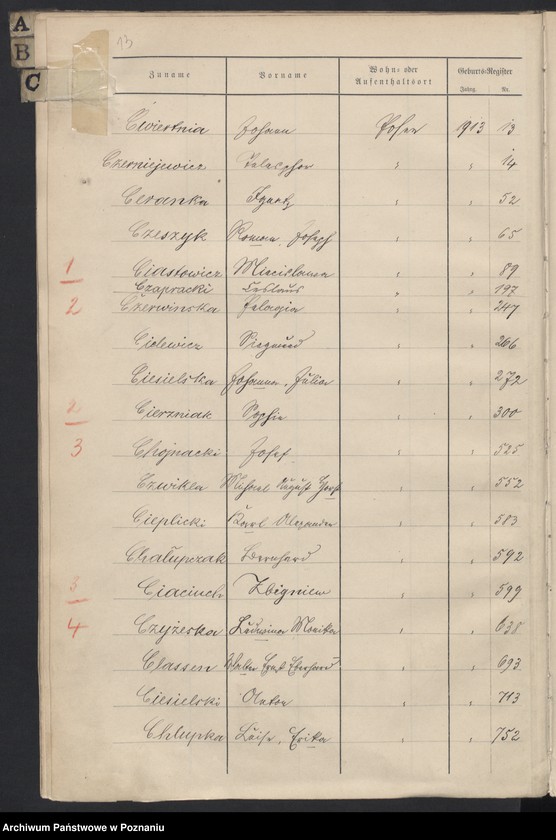 A
B
C
13
Zuname Vorname Wohn- oder Aufenthaltsort Geburts-Register
Jahrg. Nr.
Cwiertnia Johann Posen 1913 13
Czerniejewicz Telesphor " " 14
Ceranka Ignatz " " 52
Czeszyk Roman, Joseph " " 65
1 Ciastowicz Miecislawa " " 89
Czapracki Ceslaus " " 197
2 Czerwinska Pelagia " " 247
Cielewicz Siegmund " " 266
Ciesielska Johanna, Julia " " 272
2 Cierzniak Sophie " " 300
3 Chojnacki Josef " " 525
Czwikla Michael August Horst " " 552
Cieplicki Karl Alexander " " 583
Chałupczak Bernhard " " 592
3 Ciaciuch Zbigniew " " 599
4 Czyżerska Ludwina Monika " " 638
Classen Walter Ernst Eberhard " " 693
Ciesielski Anton " " 713
Chlupka Luise, Erika " " 752
Archiwum Państwowe w Poznaniu